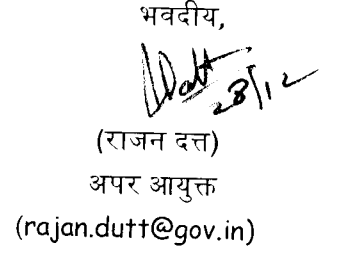 भवदीय,
28/12
(राजन दत्त)
अपर आयुक्त
(rajan.dutt@gov.in)